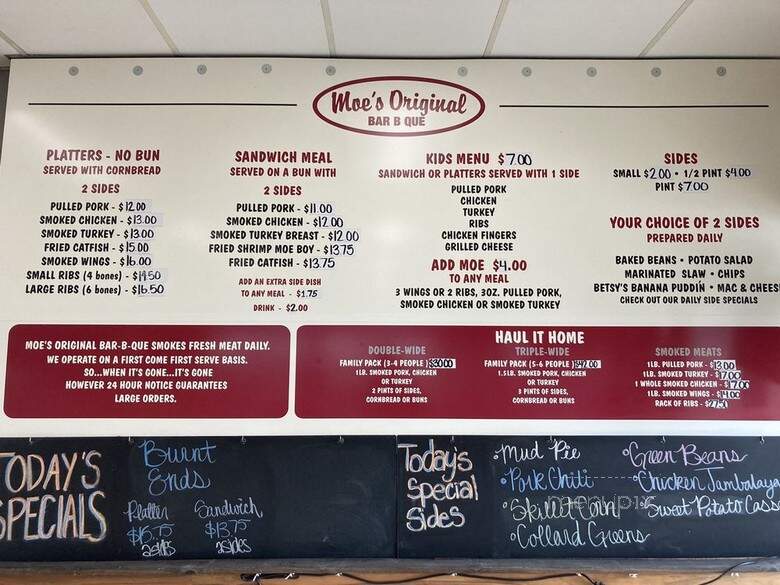 Moe's Original
BAR B QUE
PLATTERS - NO BUN
SERVED WITH CORNBREAD
2 SIDES
PULLED PORK - $12.00
SMOKED CHICKEN - $13.00
SMOKED TURKEY - $13.00
FRIED CATFISH - $15.00
SMOKED WINGS - $16.00
SMALL RIBS (4 bones) - $14.50
LARGE RIBS (6 bones) - $16.50
SANDWICH MEAL
SERVED ON A BUN WITH
2 SIDES
PULLED PORK - $11.00
SMOKED CHICKEN - $12.00
SMOKED TURKEY BREAST - $12.00
FRIED SHRIMP MOE BOY - $13.75
FRIED CATFISH - $13.75
ADD AN EXTRA SIDE DISH
TO ANY MEAL - $1.75
DRINK - $2.00
KIDS MENU $7.00
SANDWICH OR PLATTERS SERVED WITH 1 SIDE
PULLED PORK
CHICKEN
TURKEY
RIBS
CHICKEN FINGERS
GRILLED CHEESE
ADD MOE $4.00
TO ANY MEAL
3 WINGS OR 2 RIBS, 3OZ. PULLED PORK,
SMOKED CHICKEN OR SMOKED TURKEY
SIDES
SMALL $2.00 • 1/2 PINT $4.00
PINT $7.00
YOUR CHOICE OF 2 SIDES
PREPARED DAILY
BAKED BEANS • POTATO SALAD
MARINATED SLAW • CHIPS
BETSY'S BANANA PUDDIN • MAC & CHEES
CHECK OUT OUR DAILY SIDE SPECIALS
MOE'S ORIGINAL BAR-B-QUE SMOKES FRESH MEAT DAILY.
WE OPERATE ON A FIRST COME FIRST SERVE BASIS.
SO...WHEN IT'S GONE...IT'S GONE
HOWEVER 24 HOUR NOTICE GUARANTEES
LARGE ORDERS.
HAUL IT HOME
DOUBLE-WIDE
FAMILY PACK (3-4 PEOPLE) $30.00
1LB. SMOKED PORK, CHICKEN
OR TURKEY
2 PINTS OF SIDES,
CORNBREAD OR BUNS
TRIPLE-WIDE
FAMILY PACK (5-6 PEOPLE) $42.00
1.5LB. SMOKED PORK, CHICKEN
OR TURKEY
3 PINTS OF SIDES,
CORNBREAD OR BUNS
SMOKED MEATS
1LB. PULLED PORK - $13.00
1LB. SMOKED TURKEY - $17.00
1 WHOLE SMOKED CHICKEN - $17.00
1LB. SMOKED WINGS - $14.00
RACK OF RIBS - $27.50
TODAY'S
SPECIALS
Burnt
Ends
Platter
$16.75
2sides
Sandwich
$13.75
2sides
Today's
Special
Sides
•Mud Pie
•Pork Chili
•Skillet Corn
•Collard Greens
•Green Beans
•Chicken Jambalaya
•Sweet Potato Cass
menupix